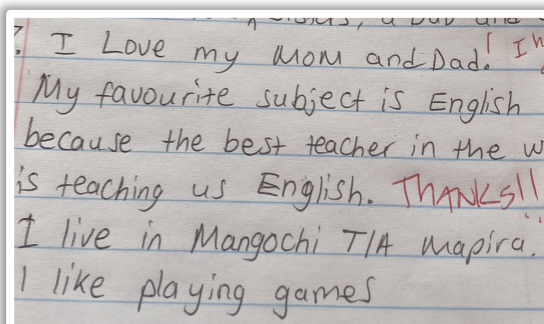 I Love my Mom and Dad!
My favourite subject is English
because the best teacher in the
is teaching us English. THANKS!!
I live in Mangochi T/A Mapira.
I like playing games